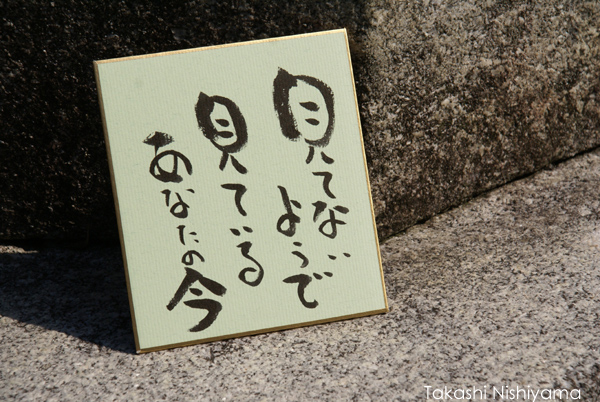 見てない
ようで
見ている
あなたの今
Takashi Nishiyama